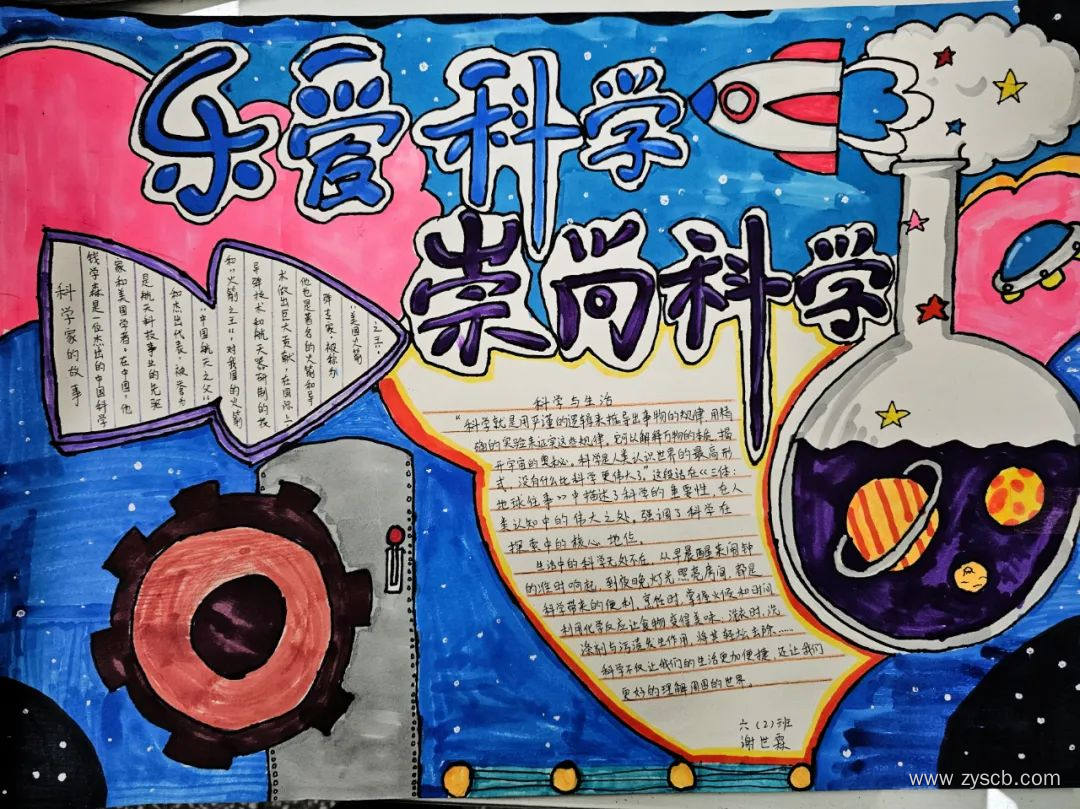 乐爱科学
崇尚科学
科学家的故事
钱学森是一位杰出的中国科学
家和美国学者,在中国,他
是航天科技事业的先驱
和杰出代表,被誉为
“中国航天之父”
和“火箭之王”,对我国的火箭
导弹技术和航天器研制的技
术做出巨大贡献,在国际上
他也是著名的火箭和导
弹专家,被称为
“美国火箭
之王”。
科学与生活
“科学就是用严谨的逻辑来推导出事物的规律,用精
确的实验来证实这些规律。它可以解释万物的本质,揭
开宇宙的奥秘。科学是人类认识世界的最高形
式,没有什么比科学更伟大了。”这段话在《三体:
地球往事》中描述了科学的重要性,在人
类认知中的伟大之处。强调了科学在
探索中的核心地位。
生活中的科学无处不在。从早晨醒来闹钟
的准时响起,到夜晚灯光照亮房间,都是
科学带来的便利。烹饪时,掌握火候和时间
利用化学反应让食物变得美味。洗衣时,洗
涤剂与污渍发生作用,将其轻松去除……
科学不仅让我们的生活更加便捷,还让我们
更好的理解周围的世界。
六(2)班
谢世霖
www.zyscb.com